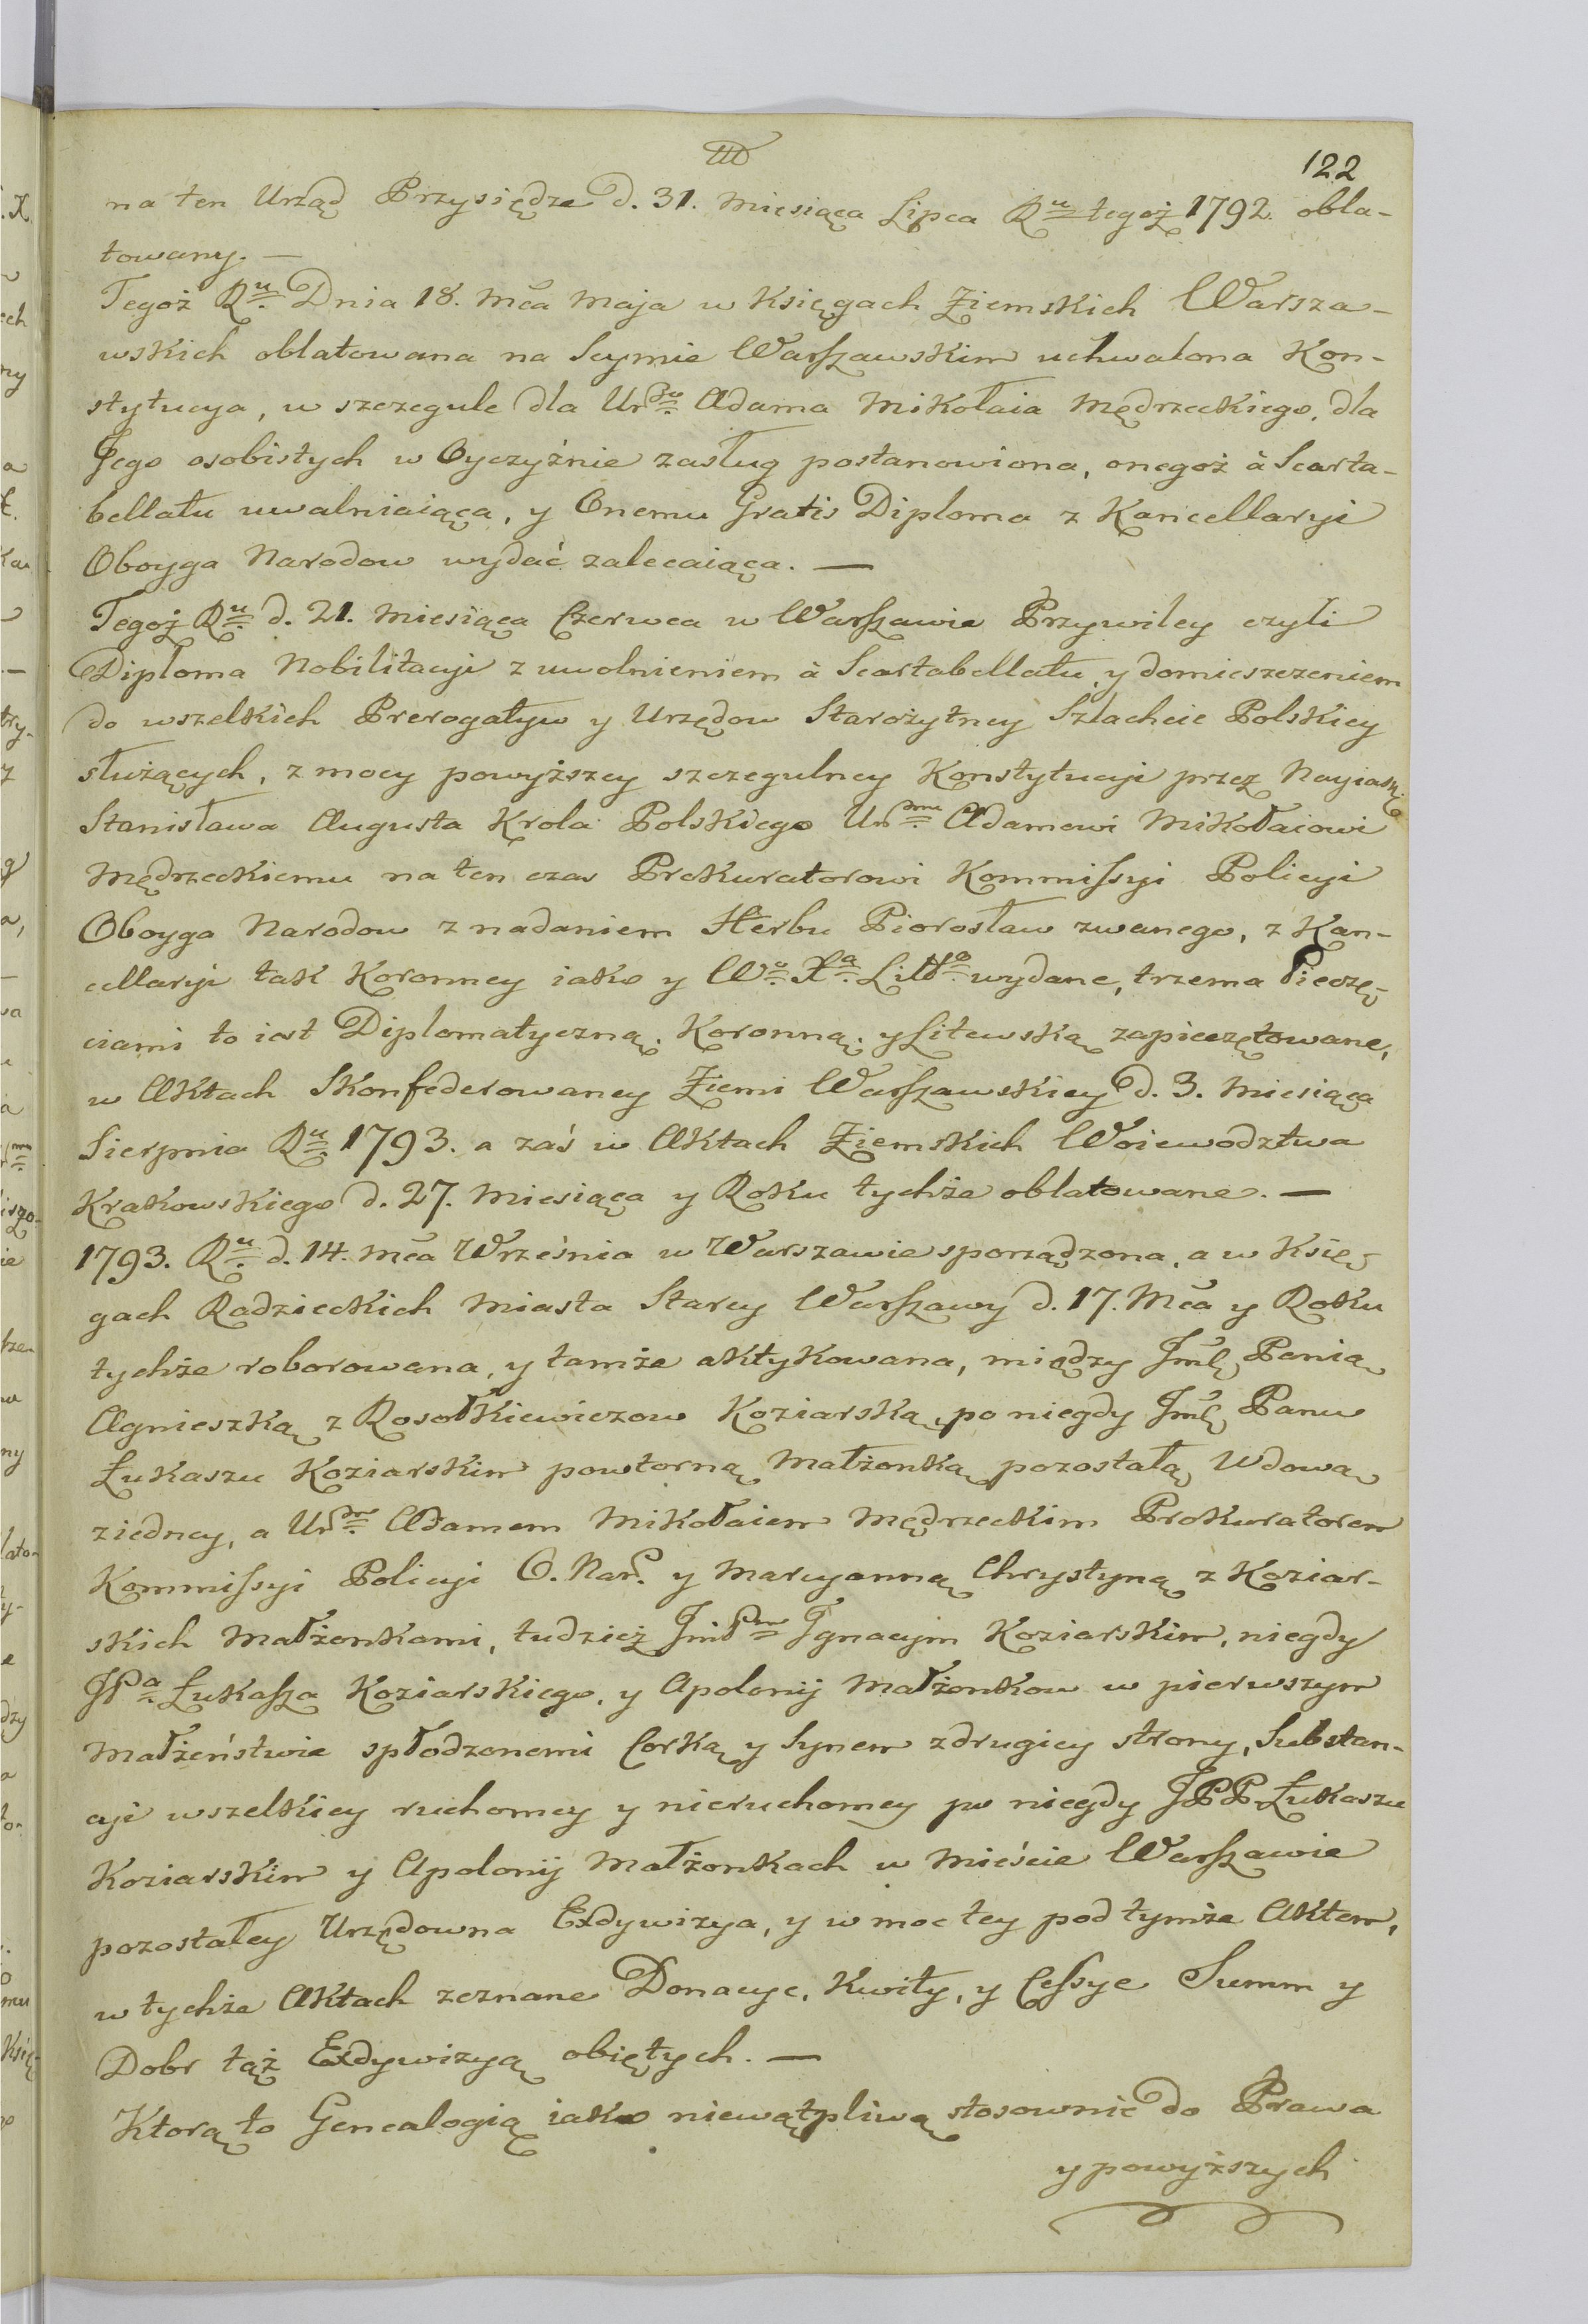 122
na ten Urząd Przysiędze d. 31. Miesiąca Lipca Ru tegoż 1792. obla-
towany. —
Tegoż Ru Dnia 18. Mca Maja w Księgach Ziemskich Warsza-
wskich oblatowana na Seymie Warszawskim uchwalona Kon-
stytucya, w szczegule dla Urdu Adama Mikołaia Mędrzeckiego, dla
Jego osobistych w Oyczyźnie zasług postanowiona, onegoż à Scarta-
bellatu uwalniaiąca, y Onemu Gratis Diploma z Kancellaryi
Oboyga Narodow wydać zalecaiąca. —
Tegoż Ru d. 21. Miesiąca Czerwca w Warszawie Przywiley czyli
Diploma Nobilitacyi z uwolnieniem à Scartabellatu, y domieszczeniem
do wszelkich Prerogatyw y Urzędow Starożytney Szlachcie Polskiey
służących, z mocy powyższey szczegulney Konstytucyi przez Nayiasz:
Stanisława Augusta Krola Polskiego Urdmu Adamowi Mikołaiowi
Mędrzeckiemu na ten czas Prokuratorowi Kommissyi Policyi
Oboyga Narodow z nadaniem Herbu Piorosław zwanego, z Kan-
cellaryi tak Koronney iako y Wo Xa Litto wydane, trzema Pieczę-
ciami to iest Diplomatyczną, Koronną, y Litewską zapieczętowane,
w Aktach Skonfederowaney Ziemi Warszawskiey d. 3. Miesiąca
Sierpnia Ru 1793. a zaś w Aktach Ziemskich Woiewodztwa
Krakowskiego d. 27. Miesiąca y Roku tychże oblatowane. —
1793. Ru d. 14. Mca Września w Warszawie sporządzona, a w Księ-
gach Radzieckich Miasta Starey Warszawy d. 17. Mca y Roku
tychże roborowana, y tamże aktykowana, między Jmć Panią
Agnieszką z Rosołkiewiczow Koziarską, po niegdy Jmć Panu
Łukaszu Koziarskim powtorną Małżonką pozostałą Wdową
z iedney, a Urdm Adamem Mikołaiem Mędrzeckim Prokuratorem
Kommissyi Policyi O. Nar. y Maryanną Chrystyną z Koziar-
skich Małżonkami, tudzież JmPm Ignacym Koziarskim, niegdy
JPa Łukasza Koziarskiego, y Apolonij Małżonkow w pierwszym
Małżeństwie spłodzonemi Corką y Synem z drugiey strony, Substan-
cyi wszelkiey ruchomey y nieruchomey po niegdy JPP. Łukaszu
Koziarskim y Apolonij Małżonkach w Mieście Warszawie
pozostałey Urzędowna Exdywizya, y w moc tey pod tymże Aktem,
w tychże Aktach zeznane Donacye, Kwity, y Cessye Summ y
Dobr tąż Exdywizyą obiętych. —
Ktorą to Genealogią iako niewątpliwą stosownie do Prawa
y powyższych